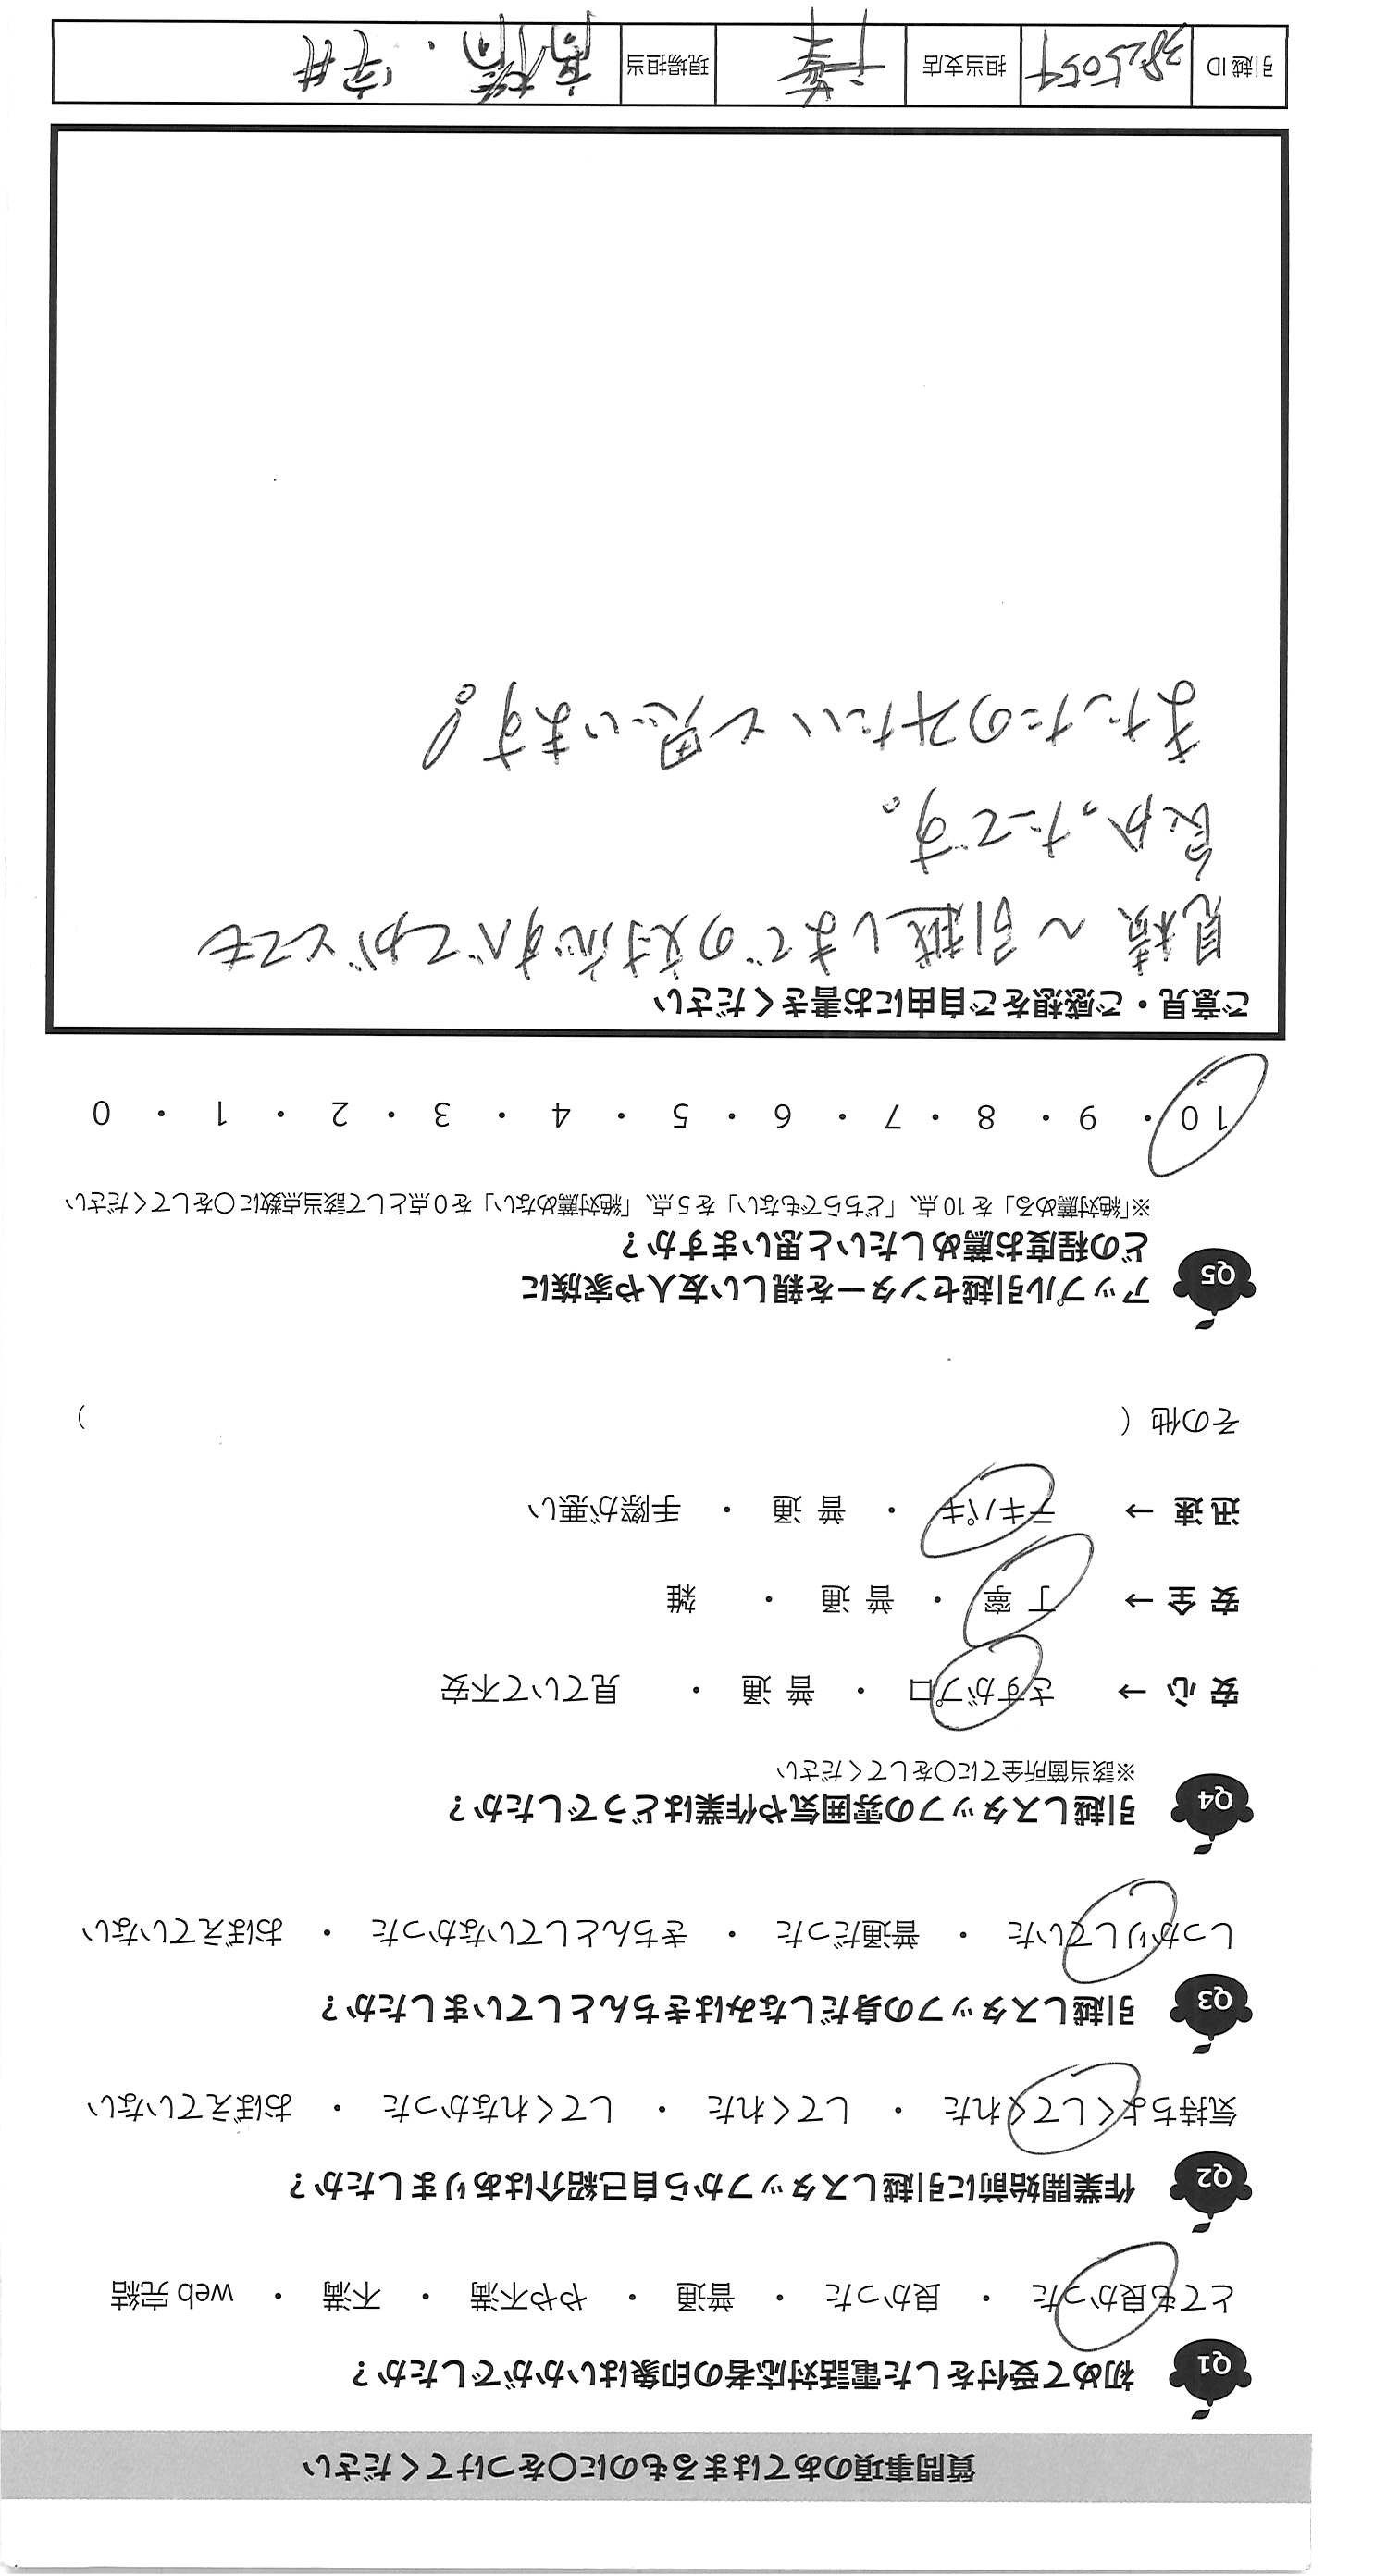 質問事項のあてはまるものに〇をつけてください
Q1 初めて受付をした電話対応者の印象はいかがでしたか？
とても良かった ・ 良かった ・ 普通 ・ やや不満 ・ 不満 ・ web 完結
Q2 作業開始前に引越しスタッフから自己紹介はありましたか？
気持ちよくしてくれた ・ してくれた ・ してくれなかった ・ おぼえていない
Q3 引越しスタッフの身だしなみはきちんとしていましたか？
しっかりしていた ・ 普通だった ・ きちんとしていなかった ・ おぼえていない
Q4 引越しスタッフの雰囲気や作業はどうでしたか？
※該当箇所全てに〇をしてください
安 心 → さすがプロ ・ 普 通 ・ 見ていて不安
安 全 → 丁 寧 ・ 普 通 ・ 雑
迅 速 → テキパキ ・ 普 通 ・ 手際が悪い
その他（ ）
Q5 アップル引越センターを親しい友人や家族に
どの程度お薦めしたいと思いますか？
※「絶対薦める」を 10 点、「どちらでもない」を 5 点、「絶対薦めない」を 0 点として該当点数に〇をしてください
10 ・ 9 ・ 8 ・ 7 ・ 6 ・ 5 ・ 4 ・ 3 ・ 2 ・ 1 ・ 0
ご意見・ご感想をご自由にお書きください
見積〜引越しまでの対応すべてがとても
良かったです。
またたのみたいと思います！
引越 ID 3825054 担当支店 千葉 現場担当 高橋・宇井